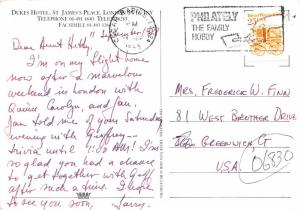 DUKES HOTEL, ST. JAMES'S PLACE, LONDON
TELEPHONE 01-491 4840
FACSIMILE 01-493 1264
Dear Aunt Hettly,
I'm on my flight home
now after a marvelous
weekend in London with
Quinn, Carolyn, and Jan.
Jan told me of your Saturday
evening with Gaffney —
trivia until 1:00 AM! I'm
so glad you had a chance
to get together with Gaff
after such a time. I hope
to see you soon, Larry.
PHILATELY
THE FAMILY
HOBBY
MRS. FREDERICK W. FINN
81 WEST BROTHER DRIVE
GREENWICH, CT
USA
06830